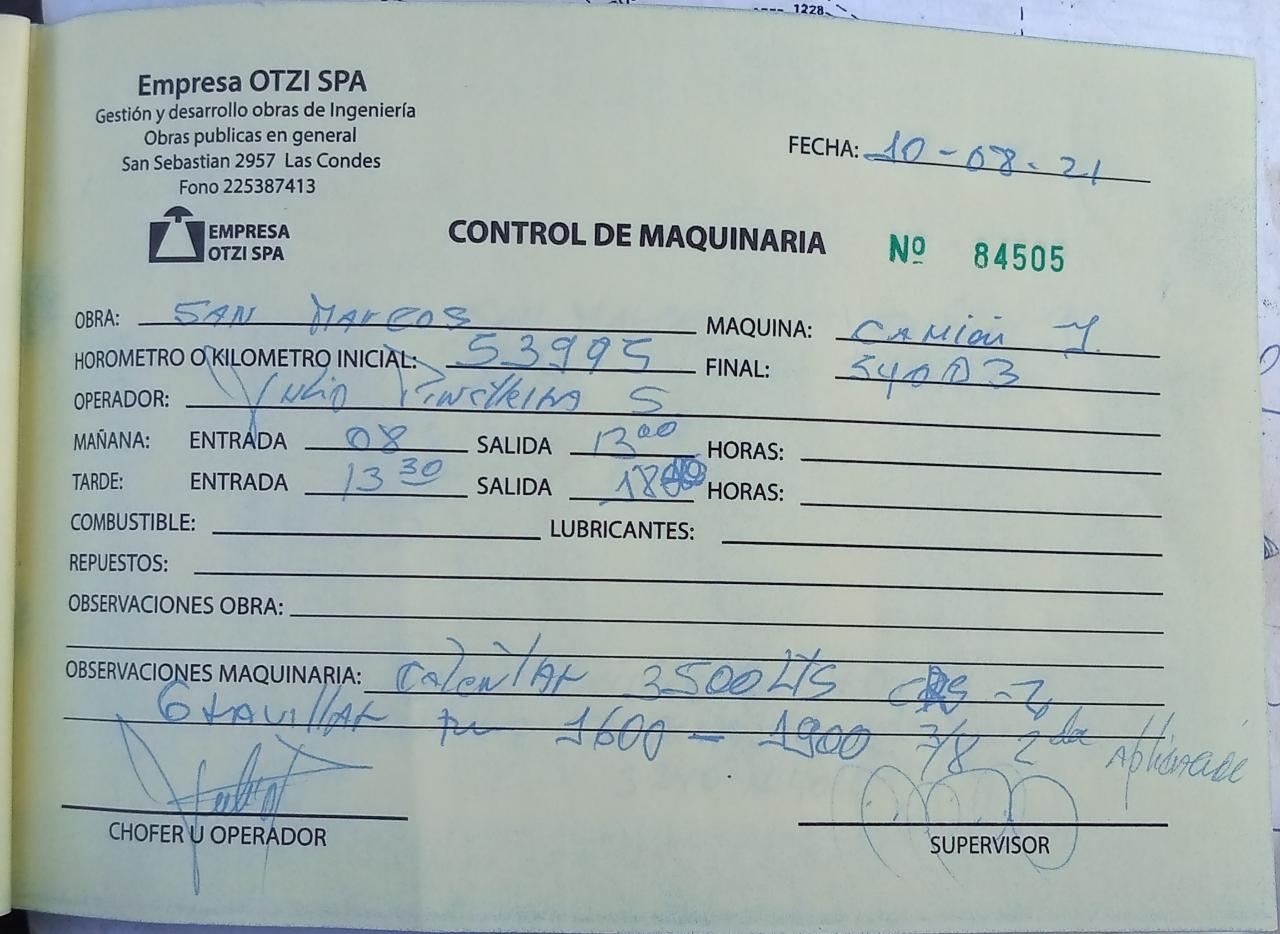 1228
Empresa OTZI SPA
Gestión y desarrollo obras de Ingeniería
Obras publicas en general
San Sebastian 2957 Las Condes
Fono 225387413
FECHA: 10-08-21
EMPRESA
OTZI SPA
CONTROL DE MAQUINARIA Nº 84505
OBRA: SAN MARCOS MAQUINA: CAMION
HOROMETRO O KILOMETRO INICIAL: 53995 FINAL: 54003
OPERADOR: Julio S
MAÑANA: ENTRADA 08 SALIDA 13 00 HORAS:
TARDE: ENTRADA 13 30 SALIDA 18 HORAS:
COMBUSTIBLE: LUBRICANTES:
REPUESTOS:
OBSERVACIONES OBRA:
OBSERVACIONES MAQUINARIA: CalenTAR 3500 LTS
GRAVILLAR 1600 - 1900 3/8 2da
CHOFER U OPERADOR
SUPERVISOR